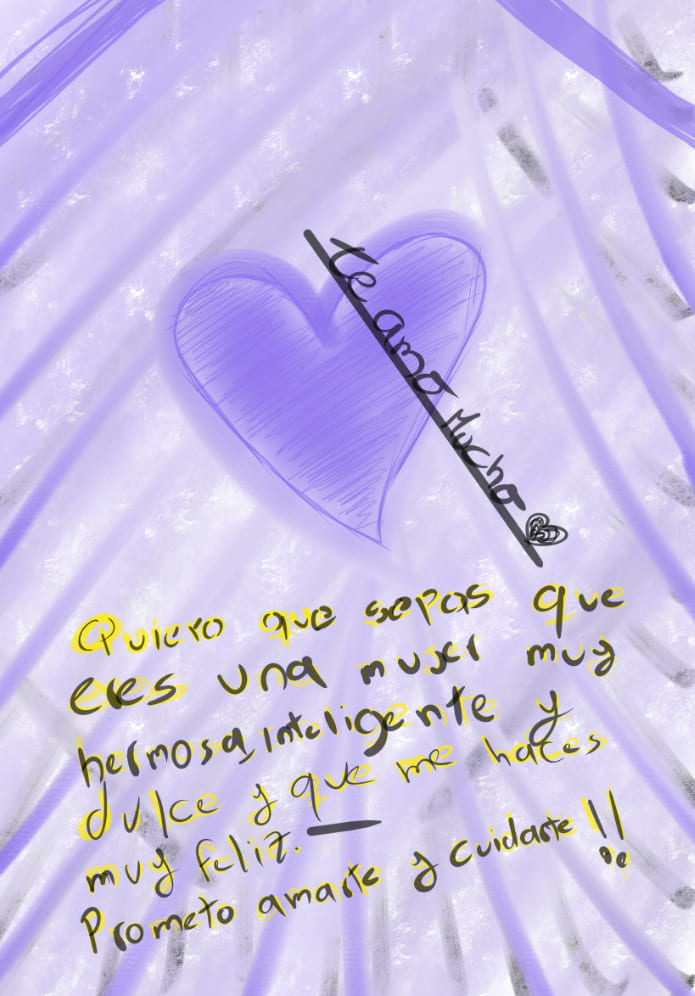 Te amo Mucho
Quiero que sepas que
eres una mujer muy
hermosa, inteligente y
dulce y que me haces
muy feliz. —
Prometo amarte y cuidarte !!